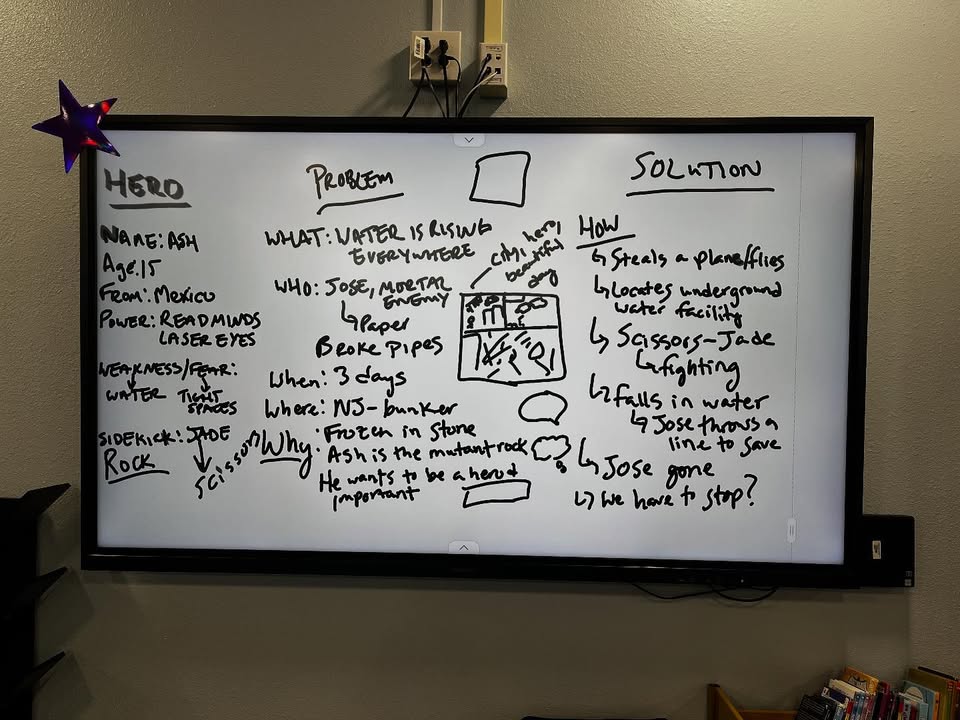 HERO
NAME: ASH
Age: 15
From: Mexico
POWER: READ MINDS
LASER EYES
WEAKNESS/FEAR:
WATER TIGHT
SPACES
SIDEKICK: JADE
ROCK
Scissors
PROBLEM
WHAT: WATER IS RISING
EVERYWHERE
WHO: JOSE, MORTAL
ENEMY
Paper
Broke pipes
When: 3 days
Where: NJ-bunker
Why: Frozen in stone
Ash is the mutant rock
He wants to be a hero &
important
City, hero,
beautiful
day
SOLUTION
HOW
Steals a plane/flies
Locates underground
water facility
Scissors-Jade
fighting
Falls in water
Jose throws a
line to save
Jose gone
We have to stop?